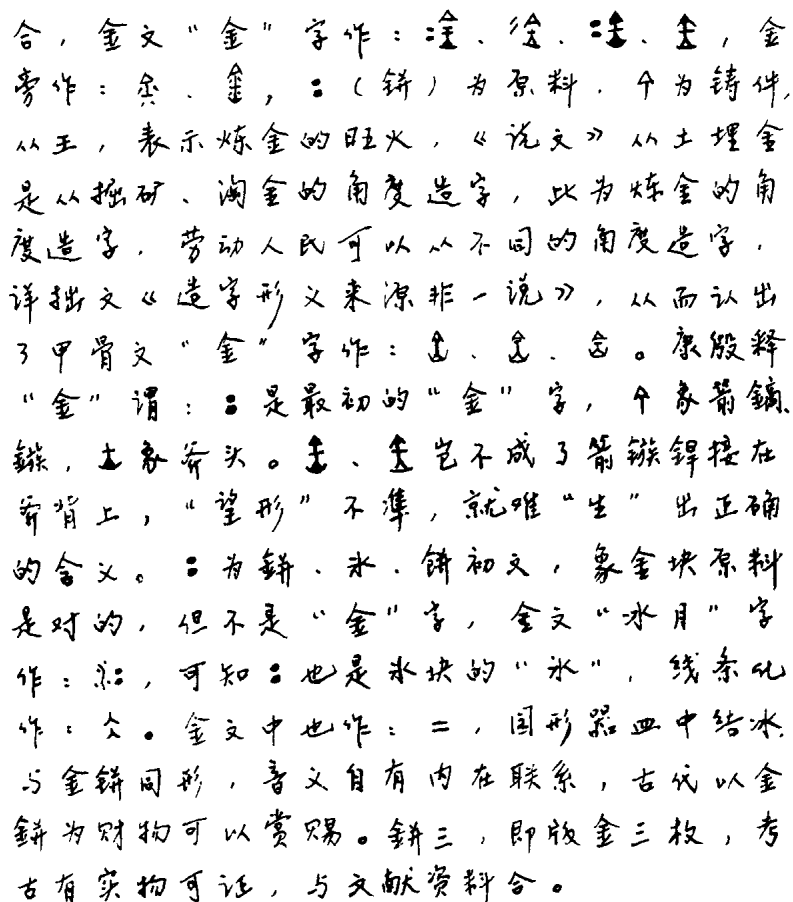 合，金文“金”字作：、、、，金
旁作：、，:（鉼）为原料，个为铸件，
从王，表示炼金的旺火，《说文》从土埋金
是从掘矿、淘金的角度造字，此为炼金的角
度造字，劳动人民可以从不同的角度造字，
详拙文《造字形义来源非一说》，从而认出
了甲骨文“金”字作：、、。康殷释
“金”谓：:是最初的“金”字，个象箭鏑、
鏃，土象斧头。、岂不成了箭鏃銲接在
斧背上，“望形”不準，就难“生”出正确
的含义。:为鉼、氷、餅初文，象金块原料
是对的，但不是“金”字，金文“冰月”字
作：，可知:也是氷块的“氷”，线条化
作：仌。金文中也作：二，圆形器皿中结冰，
与金鉼同形，音义自有内在联系，古代以金
鉼为财物可以赏赐。鉼三，即版金三枚，考
古有实物可证，与文献资料合。